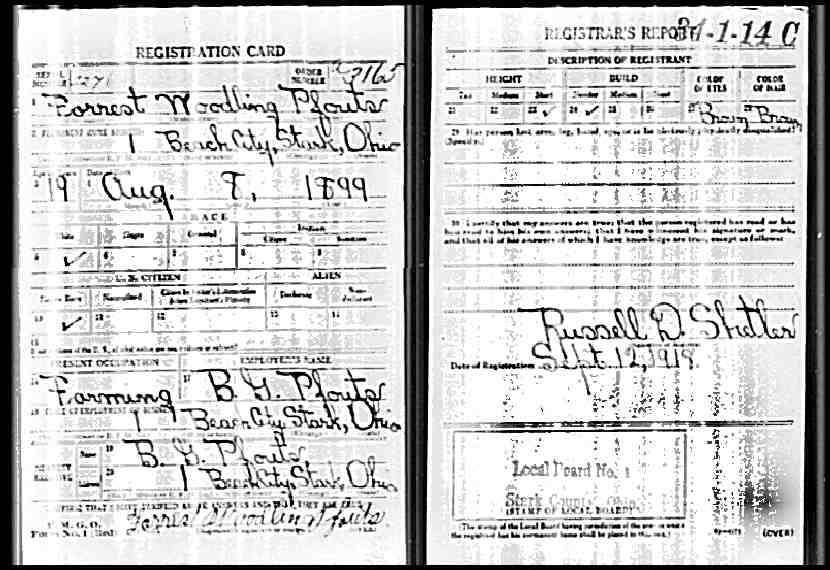 REGISTRATION CARD
SERIAL NUMBER
ORDER NUMBER 3165
1 Forrest Woodling Pfouts
2 PERMANENT HOME ADDRESS
1 Beach City, Stark, Ohio
Age in Years Date of Birth
3 19 4 Aug. 8, 1899
RACE
White Negro Oriental Indian
Citizen Noncitizen
5 ✓ 6 7 8 9
U. S. CITIZEN ALIEN
Native Born Naturalized Citizen by Father's Naturalization Before Registrant's Majority Declarant Non-declarant
10 ✓ 11 12 13 14
15
PRESENT OCCUPATION EMPLOYER'S NAME
16 Farming 17 B. G. Pfouts
18 PLACE OF EMPLOYMENT OR BUSINESS
1 Beach City, Stark, Ohio
NEAREST RELATIVE
Name 19 B. G. Pfouts
Address 20 1 Beach City, Stark, Ohio
I AFFIRM THAT I HAVE VERIFIED ABOVE ANSWERS AND THAT THEY ARE TRUE
P. M. G. O.
Form No. 1 (Red) Forrest Woodling Pfouts
REGISTRAR'S REPORT 34-1-14 C
DESCRIPTION OF REGISTRANT
HEIGHT BUILD COLOR OF EYES COLOR OF HAIR
Tall Medium Short Slender Medium Stout
21 22 23 ✓ 24 ✓ 25 26 27 Brown 28 Brown
29 Has person lost arm, leg, hand, eye, or is he obviously physically disqualified?
(Specify.)
30 I certify that my answers are true; that the person registered has read or has
had read to him his own answers; that I have witnessed his signature or mark,
and that all of his answers of which I have knowledge are true, except as follows:
Russell D. Shetler
Date of Registration Sept. 12, 1918
Local Board No. 1
Stark County, Ohio
(STAMP OF LOCAL BOARD)
(The stamp of the Local Board having jurisdiction of the area in which
the registrant has his permanent home shall be placed in this box.)
(OVER)